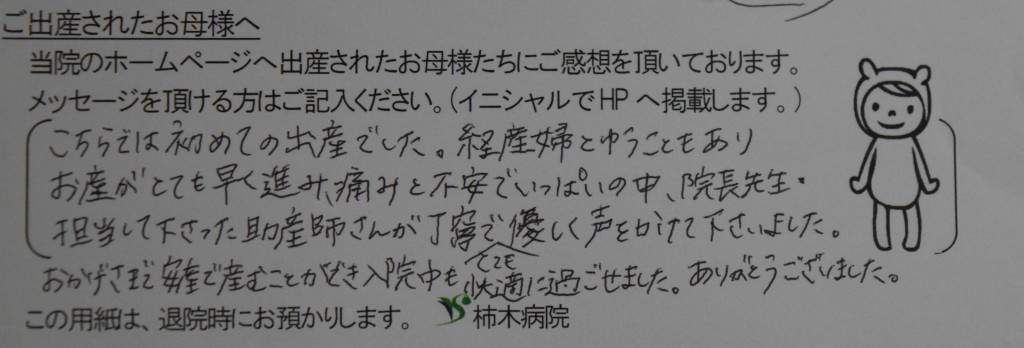 ご出産されたお母様へ
当院のホームページへ出産されたお母様たちにご感想を頂いております。
メッセージを頂ける方はご記入ください。（イニシャルでHPへ掲載します。）
こちらでは初めての出産でした。経産婦とゆうこともあり
お産がとても早く進み、痛みと不安でいっぱいの中、院長先生・
担当して下さった助産師さんが丁寧で優しく声をかけて下さいました。
おかげさまで安産で産むことができ入院中もとても快適に過ごせました。ありがとうございました。
この用紙は、退院時にお預かりします。 柿木病院